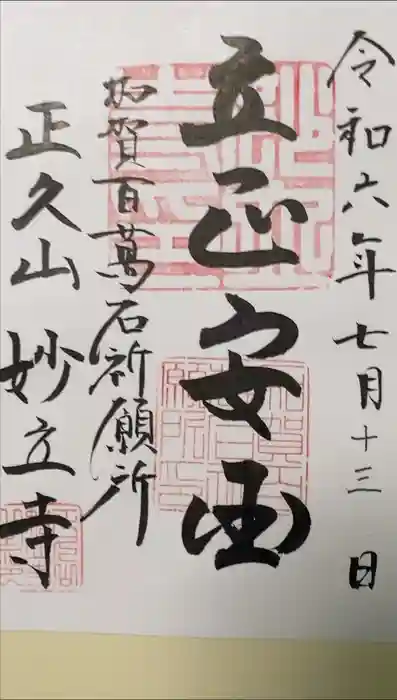 令和六年七月十三日
立正安国
加賀百萬石祈願所
正久山 妙立寺